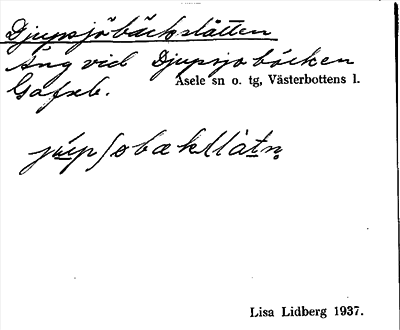 Djupsjöbäckslåtten
Äng vid Djupsjobäcken
Gafsele.
Åsele sn o. tg, Västerbottens l.
Lisa Lidberg 1937.